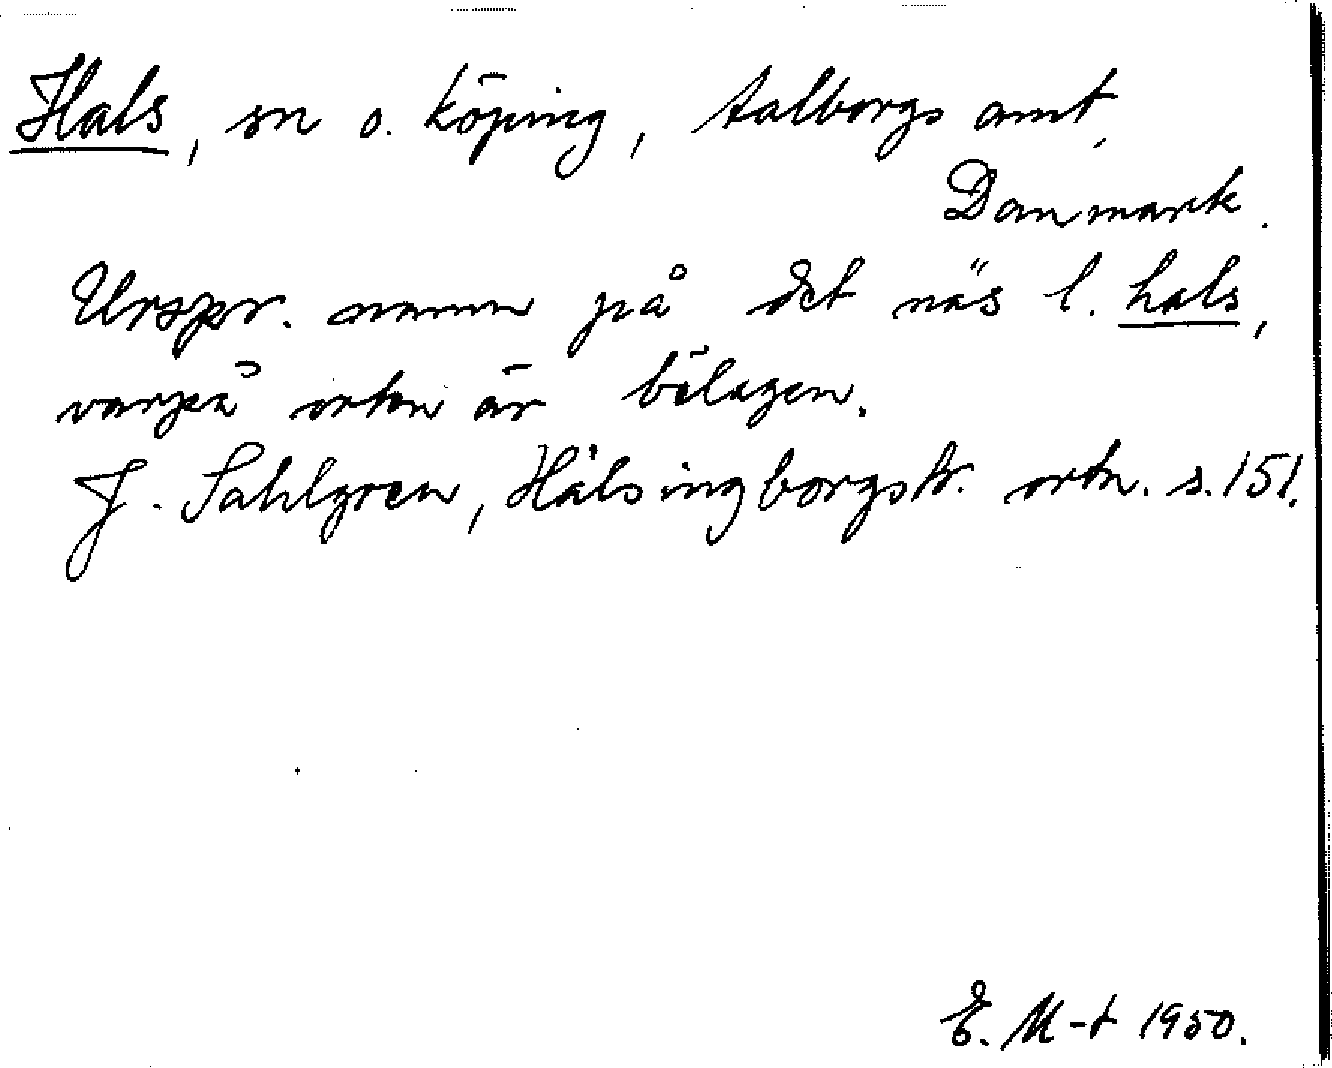 Hals, sn o. köping, Aalborgs amt,
Danmark.
Urspr. namn på det näs l. hals,
varpå orten är belägen.
J. Sahlgren, Hälsingborgstr. ortn. s. 151.
E. M-t 1950.